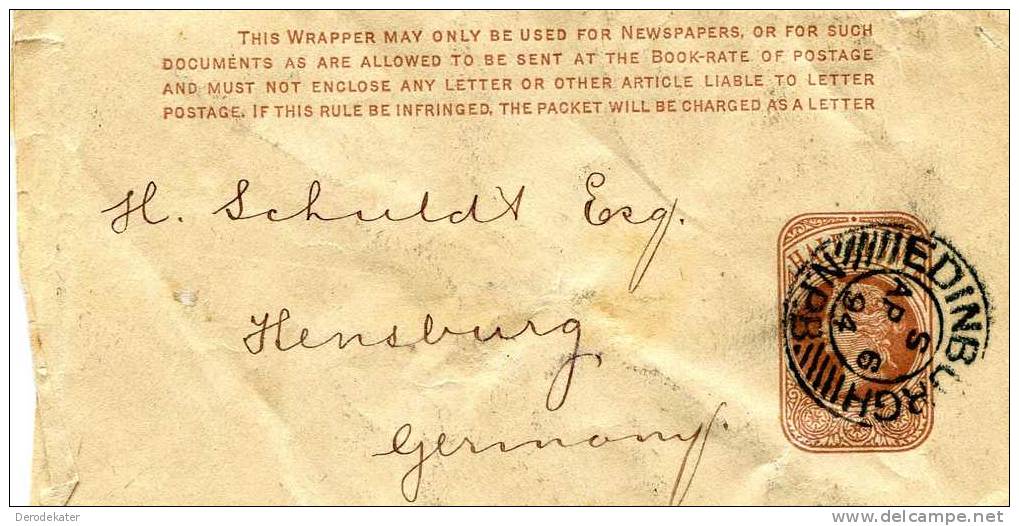 THIS WRAPPER MAY ONLY BE USED FOR NEWSPAPERS, OR FOR SUCH
DOCUMENTS AS ARE ALLOWED TO BE SENT AT THE BOOK-RATE OF POSTAGE
AND MUST NOT ENCLOSE ANY LETTER OR OTHER ARTICLE LIABLE TO LETTER
POSTAGE. IF THIS RULE BE INFRINGED, THE PACKET WILL BE CHARGED AS A LETTER
H. Schuldt Esq.
Hensburg
Germany.
EDINBURGH
N.P.B.
S
AP 6
94
Derodekater
delcampe.net